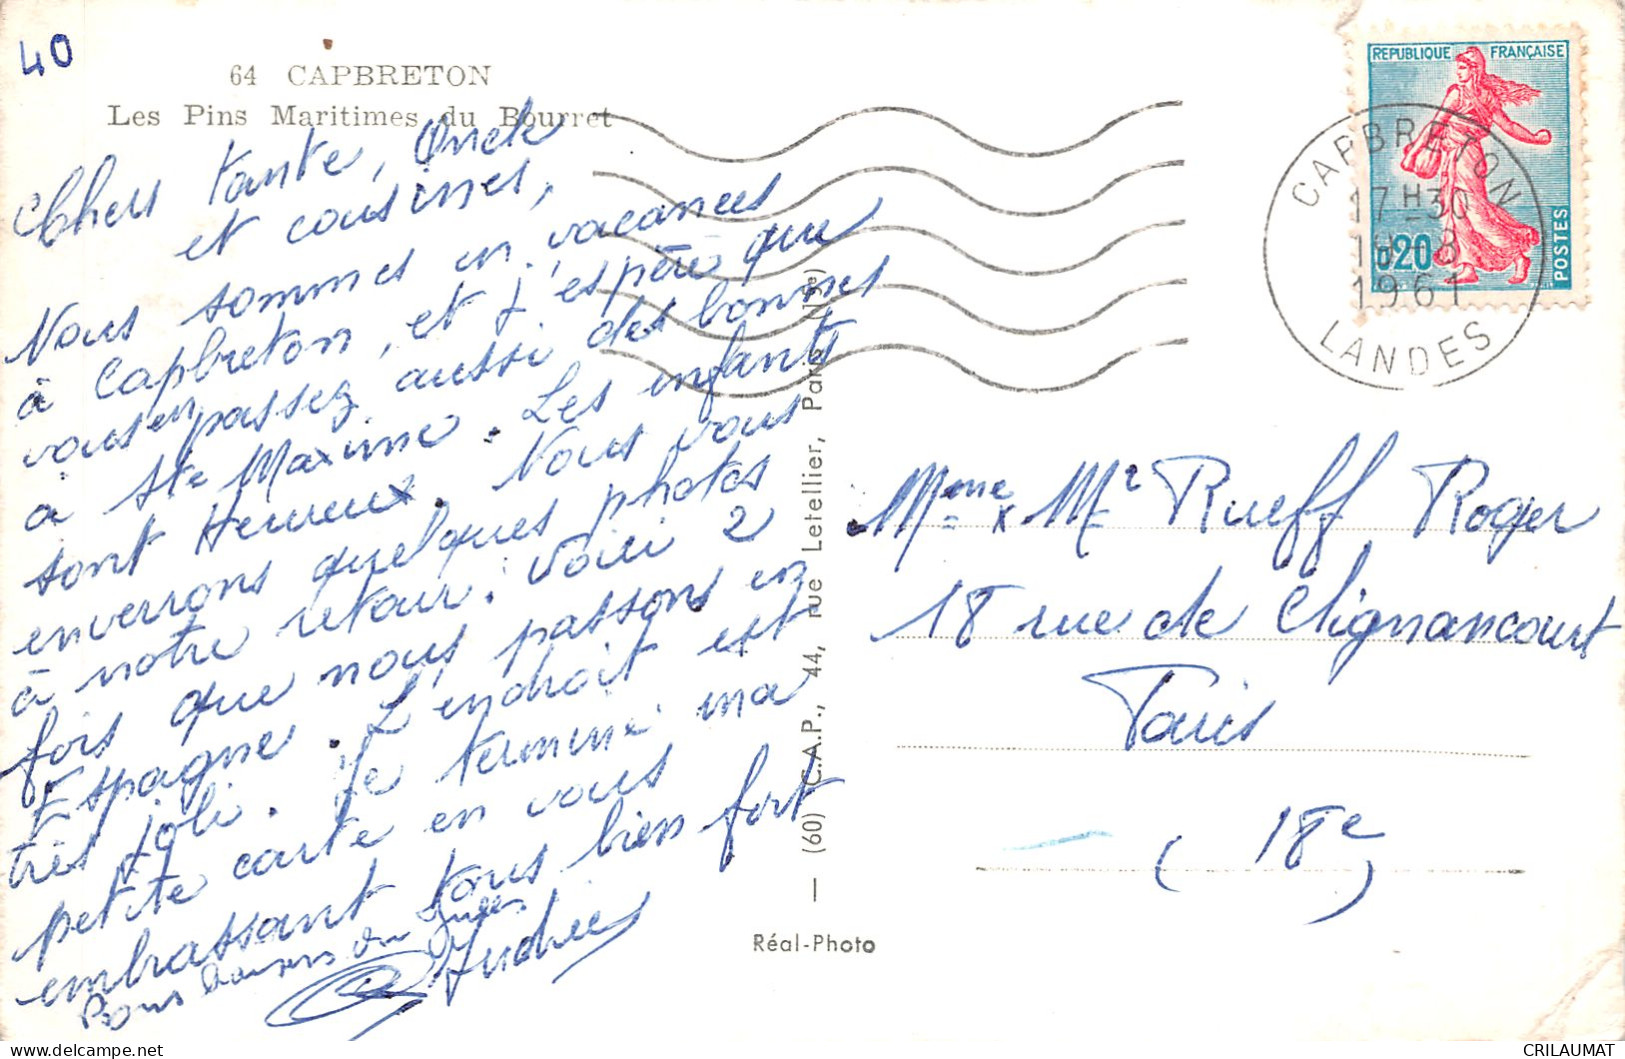 40
64 CAPBRETON
Les Pins Maritimes du Bourret
Chers tante, Oncle
et cousines,
Nous sommes en vacances
à Capbreton, et j'espère que
vous en passez aussi des bonnes
à Ste Maxime. Les enfants
sont Heureux. Nous vous
enverrons quelques photos
à notre retour. Voici 2
fois que nous passons en
Espagne. L'endroit est
très joli. Je termine ma
petite carte en vous
embrassant tous bien fort
Bons baisers du Jules
Andrée
REPUBLIQUE FRANÇAISE
0,20
POSTES
CAPBRETON
17 H 30
8
1961
LANDES
Mme x Mr Rueff Roger
18 rue de Clignancourt
Paris
(18e)
— (60) C.A.P., 44, rue Letellier, Paris
Réal-Photo
delcampe.net
CRILAUMAT